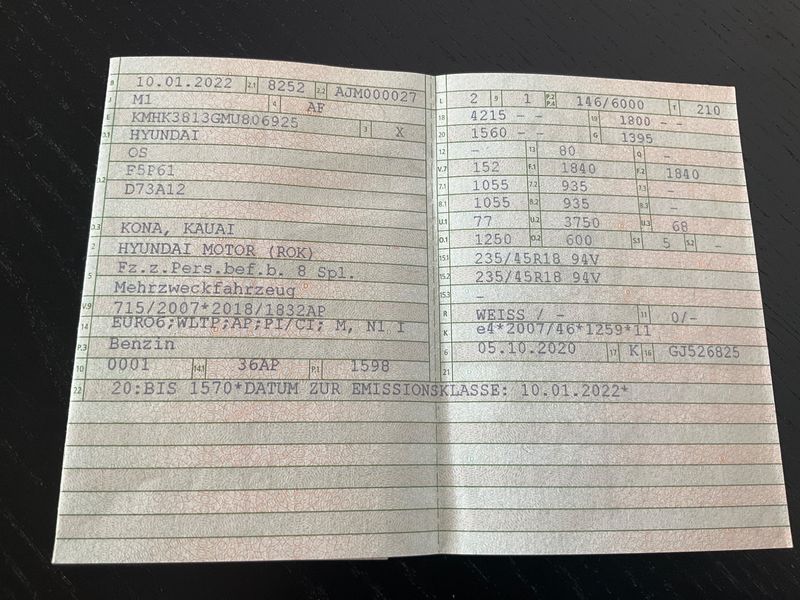 B 10.01.2022 2.1 8252 2.2 AJM000027
J M1 4 AF
E KMHK3813GMU806925 3 X
D.1 HYUNDAI
OS
F5P61
D.2 D73A12
D.3 KONA, KAUAI
2 HYUNDAI MOTOR (ROK)
5 Fz.z.Pers.bef.b. 8 Spl.
Mehrzweckfahrzeug
V.9 715/2007*2018/1832AP
14 EURO6;WLTP;AP;PI/CI; M, N1 I
P.3 Benzin
10 0001 14.1 36AP P.1 1598
22 20:BIS 1570*DATUM ZUR EMISSIONSKLASSE: 10.01.2022*
L 2 9 1 P.2 P.4 146/6000 T 210
18 4215 - - 19 1800 - -
20 1560 - - G 1395
12 - 13 80 Q -
V.7 152 F.1 1840 F.2 1840
7.1 1055 7.2 935 7.3 -
8.1 1055 8.2 935 8.3 -
U.1 77 U.2 3750 U.3 68
O.1 1250 O.2 600 S.1 5 S.2 -
15.1 235/45R18 94V
15.2 235/45R18 94V
15.3 -
R WEISS / - 11 0/-
K e4*2007/46*1259*11
6 05.10.2020 17 K 16 GJ526825
21